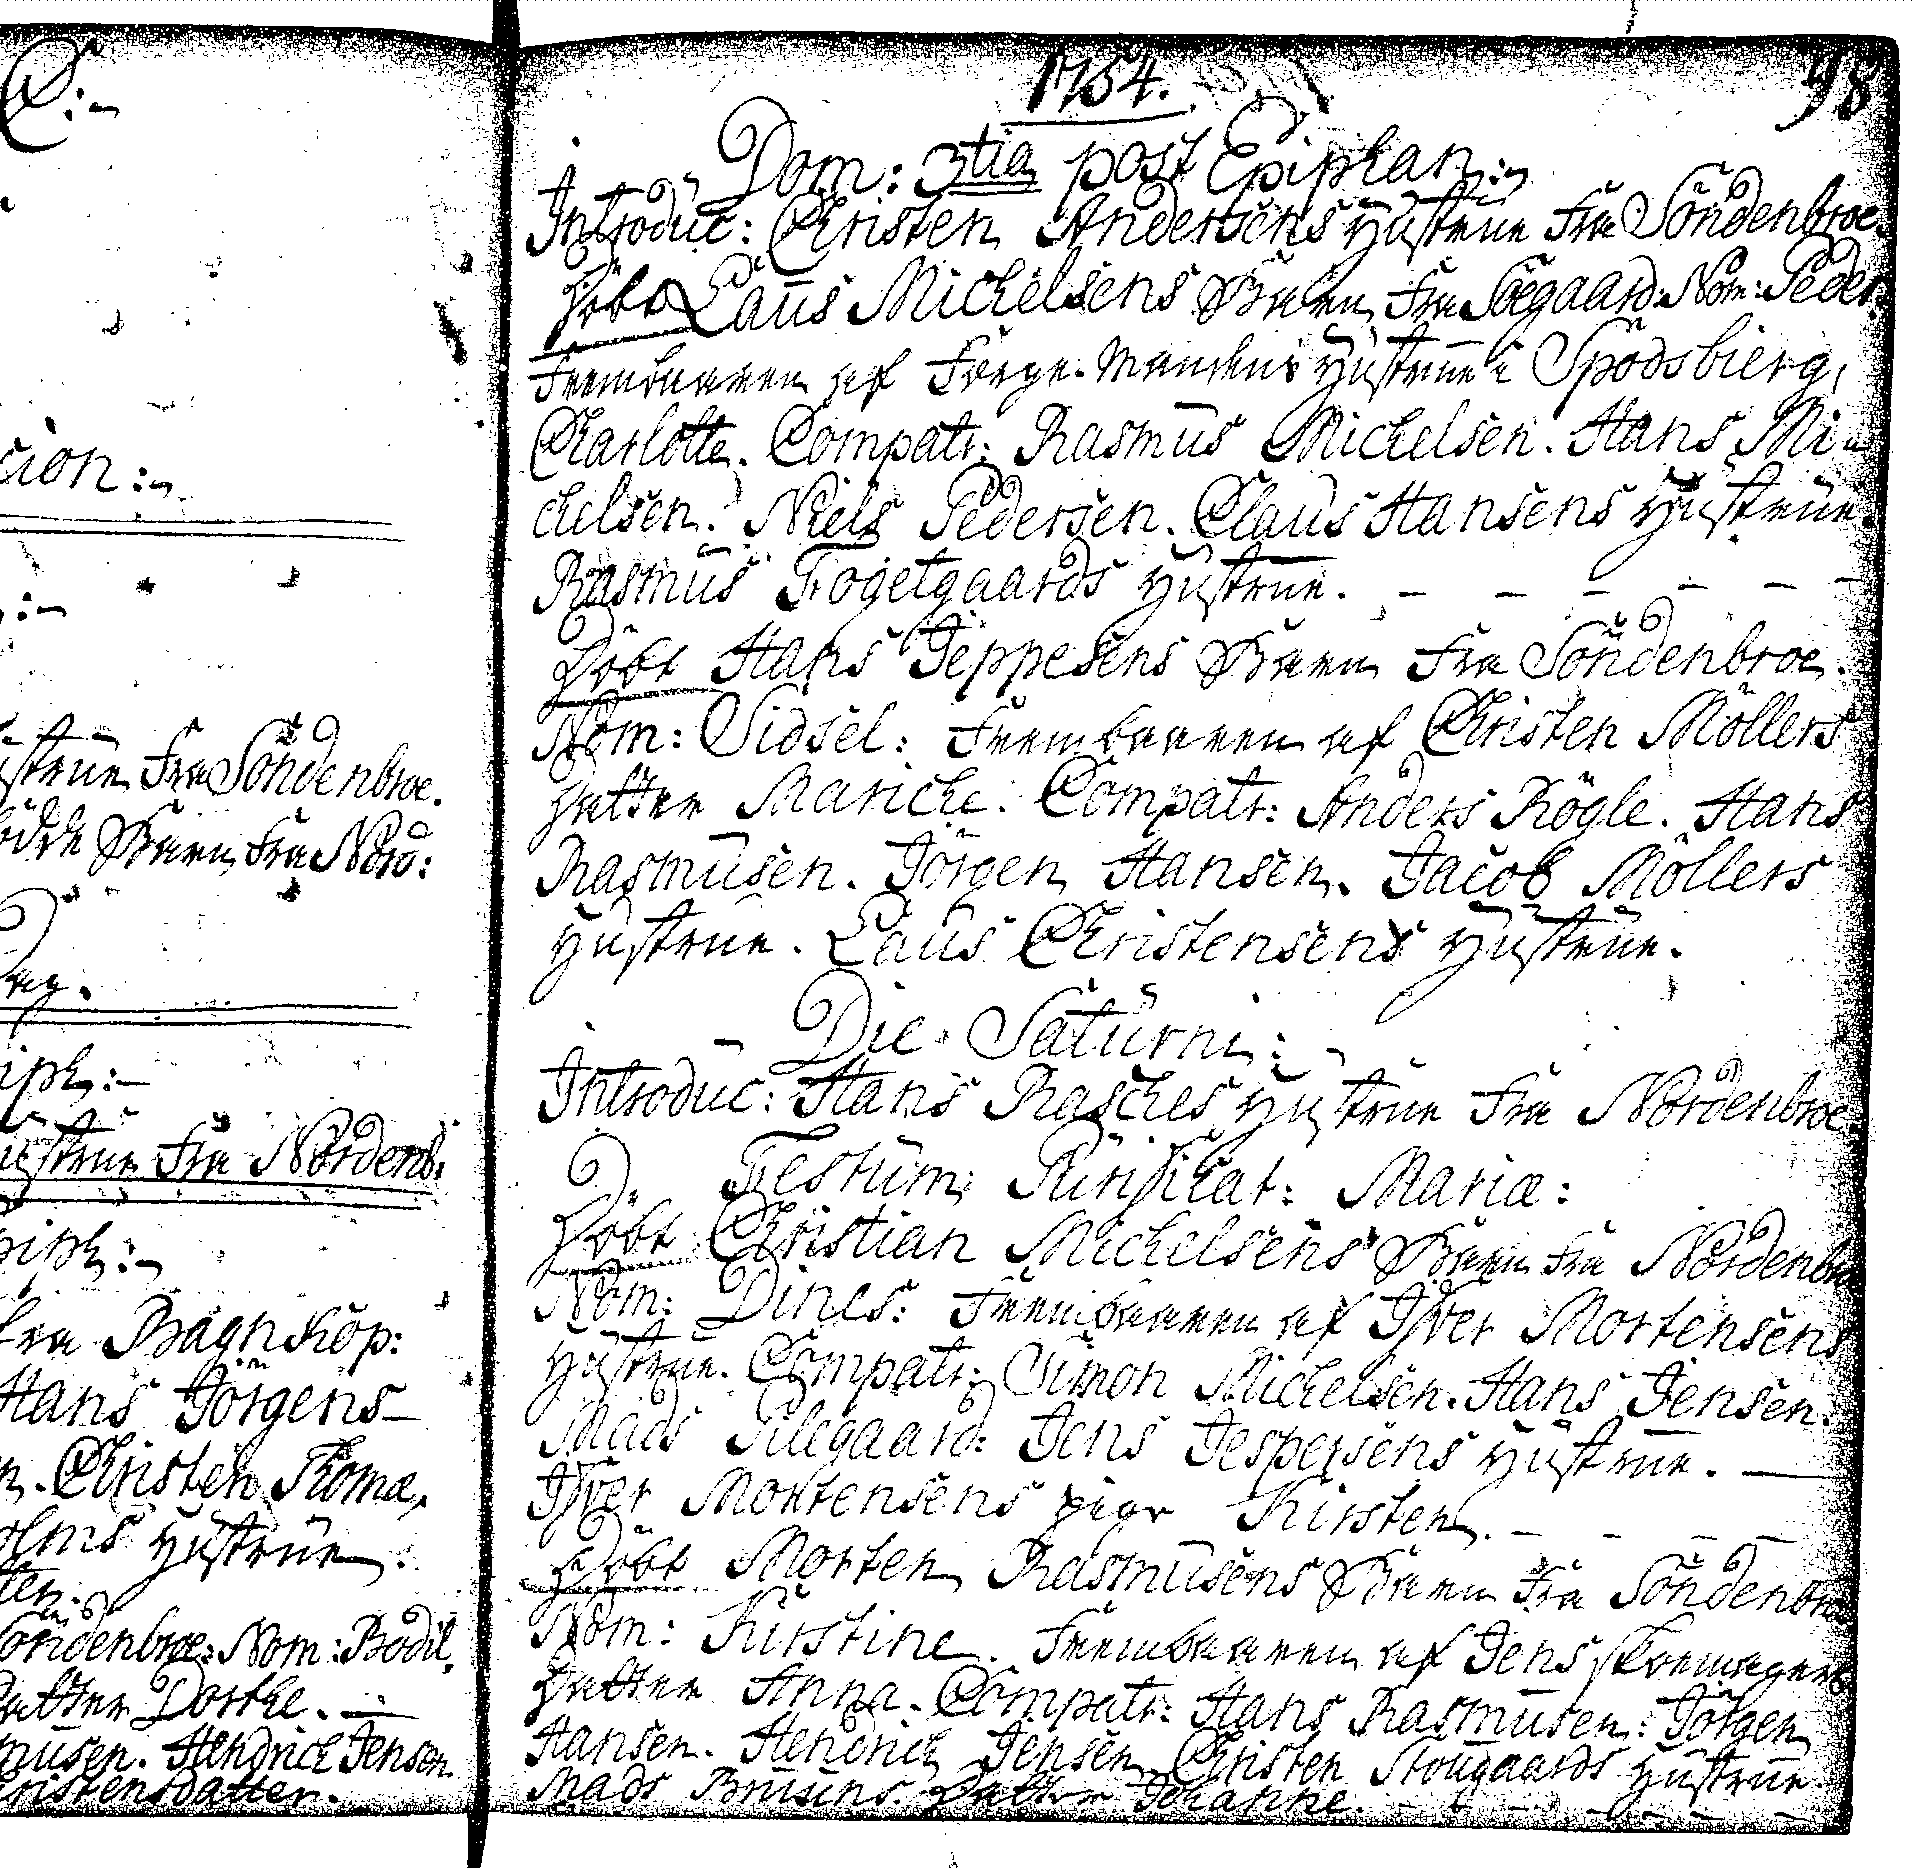 E:
cion:
ustrue fra Söndenbroe.
Barn fra Nord:
iph:
ustrue fra Nordenb:
piph:
fra Baghkop:
Hans Jörgens
n. Christen Thomæ
olms Hustrue.
Söndenbroe: Nom: Bodil,
Datter Dorthe.
musen. Hendrich Jensen
Christensdatter.
1754.
98
Dom: 3tia post Epiphan:
Introduc: Christen Andersens Hustrue fra Söndenbroe.
Döbt Laus Michelsens Barn fra Söegaard: Nom: Peder.
Frembaaren af Færge-Mandens Hustrue i Spodsbierg,
Charlotte. Compatr: Rasmus Michelsen. Hans Mi-
chelsen. Niels Pedersen. Claus Hansens Hustrue.
Rasmus Fogetgaards Hustrue.
Döbt Hans Jeppesens Barn fra Söndenbroe.
Nom: Sidsel: Frembaaren af Christen Möllers
Datter Mariche. Compatr: Anders Kögle. Hans
Rasmusen. Jörgen Hansen. Jacob Möllers
Hustrue. Laus Christensens Hustrue.
Die Saturni:
Introduc: Hans Rasches Hustrue fra Nordenbroe
Festum Purificat: Mariæ:
Döbt Christian Michelsens Barn fra Nordenbr
Nom: Dines: Frembaaren af Iver Mortensens
Hustrue. Compatr: Simon Michelsen. Hans Jensen.
Mads Pilegaard: Jens Jespersens Hustrue.
Iver Mortensens pige Kirsten.
Döbt Morten Rasmusens Barn fra Söndenbroe
Nom: Kirstine. Frembaaren af Jens Skomagers
Datter Anna. Compatr: Hans Rasmusen: Jörgen
Hansen. Hendrich Jensen Christen Stougaards Hustrue
Mads Brusens Datter Johanne.